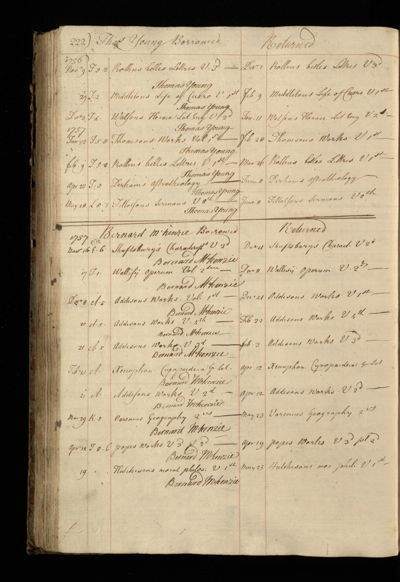 222 Thos Young Borrowed Returned
1756
Nov 9 F.9.2 Rollins belles Lettres V 3d — Dec 1 Rollins belles Lettres V 3d
Thomas Young
Middletons Life of Cicero V 1st Feb 9 Middletons Life of Cicero V 1st
Thomas Young
Watsons Horace Vol 2d — Jan 11 Watsons Horace V 2d
Thomas Young
1757
Thomsons Works Vol 1st — feb 28 Thomsons Works V 1st
Thomas Young
feb 9 F.9.2 Rollins belles Lettres V 1st — Mar 26 Rollins belles Lettres V 1st
Thomas Young
Apr 20 Derhams astrotheology June 8 Derhams astrotheology
Thomas Young
May 28 Tillotsons Sermons — June 8 Tillotsons Sermons
Thomas Young
1757 Bernard McKenzie Borrowed Returned
Nov 16 Shaftsburys Charackrs V 2d Dec Shaftsburys Charact V 2d
Bernard McKenzie
17 Wallisij Operum Vol 2um — Dec 8 Wallisij Operum V
Bernard McKenzie
Dec 8 Addisons Works Vol 1st — Dec 21 Addisons Works V 1st
Bernard McKenzie
21 Addisons Works V 4th — Feb 22 Addisons Works V 4th —
Bernard McKenzie
Addisons Works V 3d — feb 2 Addisons Works V 3d
Bernard McKenzie
Feb 21 Xenophon Cyropaedia — apr 12 Xenophon Cyropaedia
Bernard McKenzie
Addisons Works V 2d — apr 12 Addisons Works V 2d —
Bernard McKenzie
Mar 29 Varenius Geography 2 — May 23 Varenius Geography 2
Bernard McKenzie
Apr 12 popes Works V 3d pt 2d — apr 19 popes Works V 3d pt 2d
Bernard McKenzie
19 Hutchesons moral philos. V 1st May 23 Hutchesons mor phil. V 1st —
Bernard McKenzie